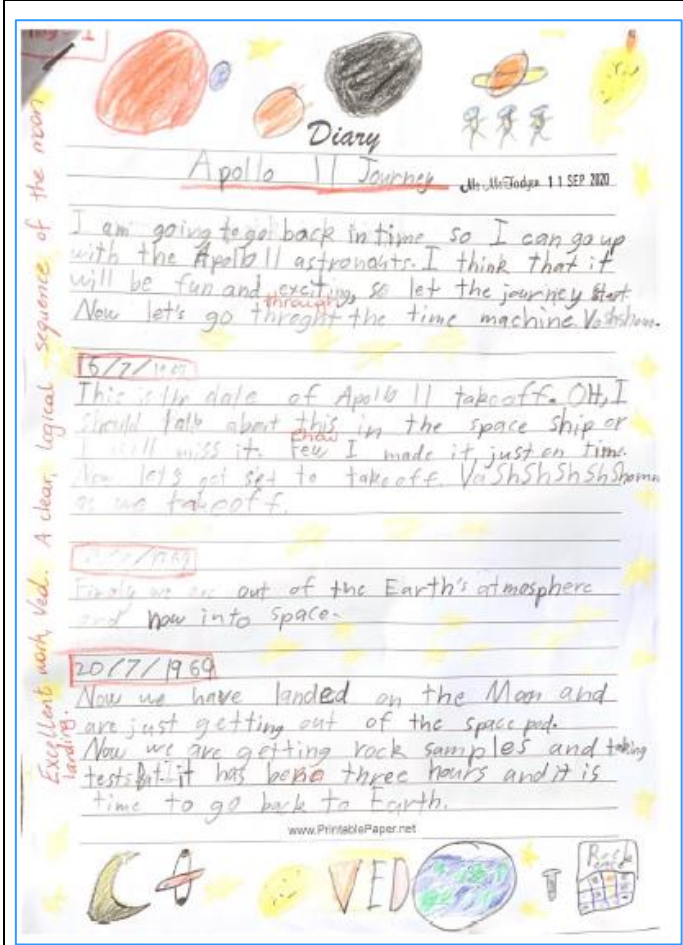 Diary
Apollo 11 Journey
11 SEP 2020
I am going to go back in time so I can go up
with the Apollo 11 astronauts. I think that it
will be fun and exciting, so let the journey start.
through
Now let's go threght the time machine. Vashshom.
15/7/1969
This is the date of Apollo 11 takeoff. OH, I
should talk about this in the space ship or
I will miss it. Few I made it just on time.
Now let's get set to takeoff. VaShShShShShomm
as we takeoff.
/7/1969
Finaly we are out of the Earth's atmosphere
and now into space.
20/7/1969
Now we have landed on the Moon and
are just getting out of the space pod.
Now we are getting rock samples and taking
tests. But it has three hours and it is
time to go back to Earth.
www.PrintablePaper.net
VED
Excellent work, Ved. A clear, logical sequence of the moon
landing.